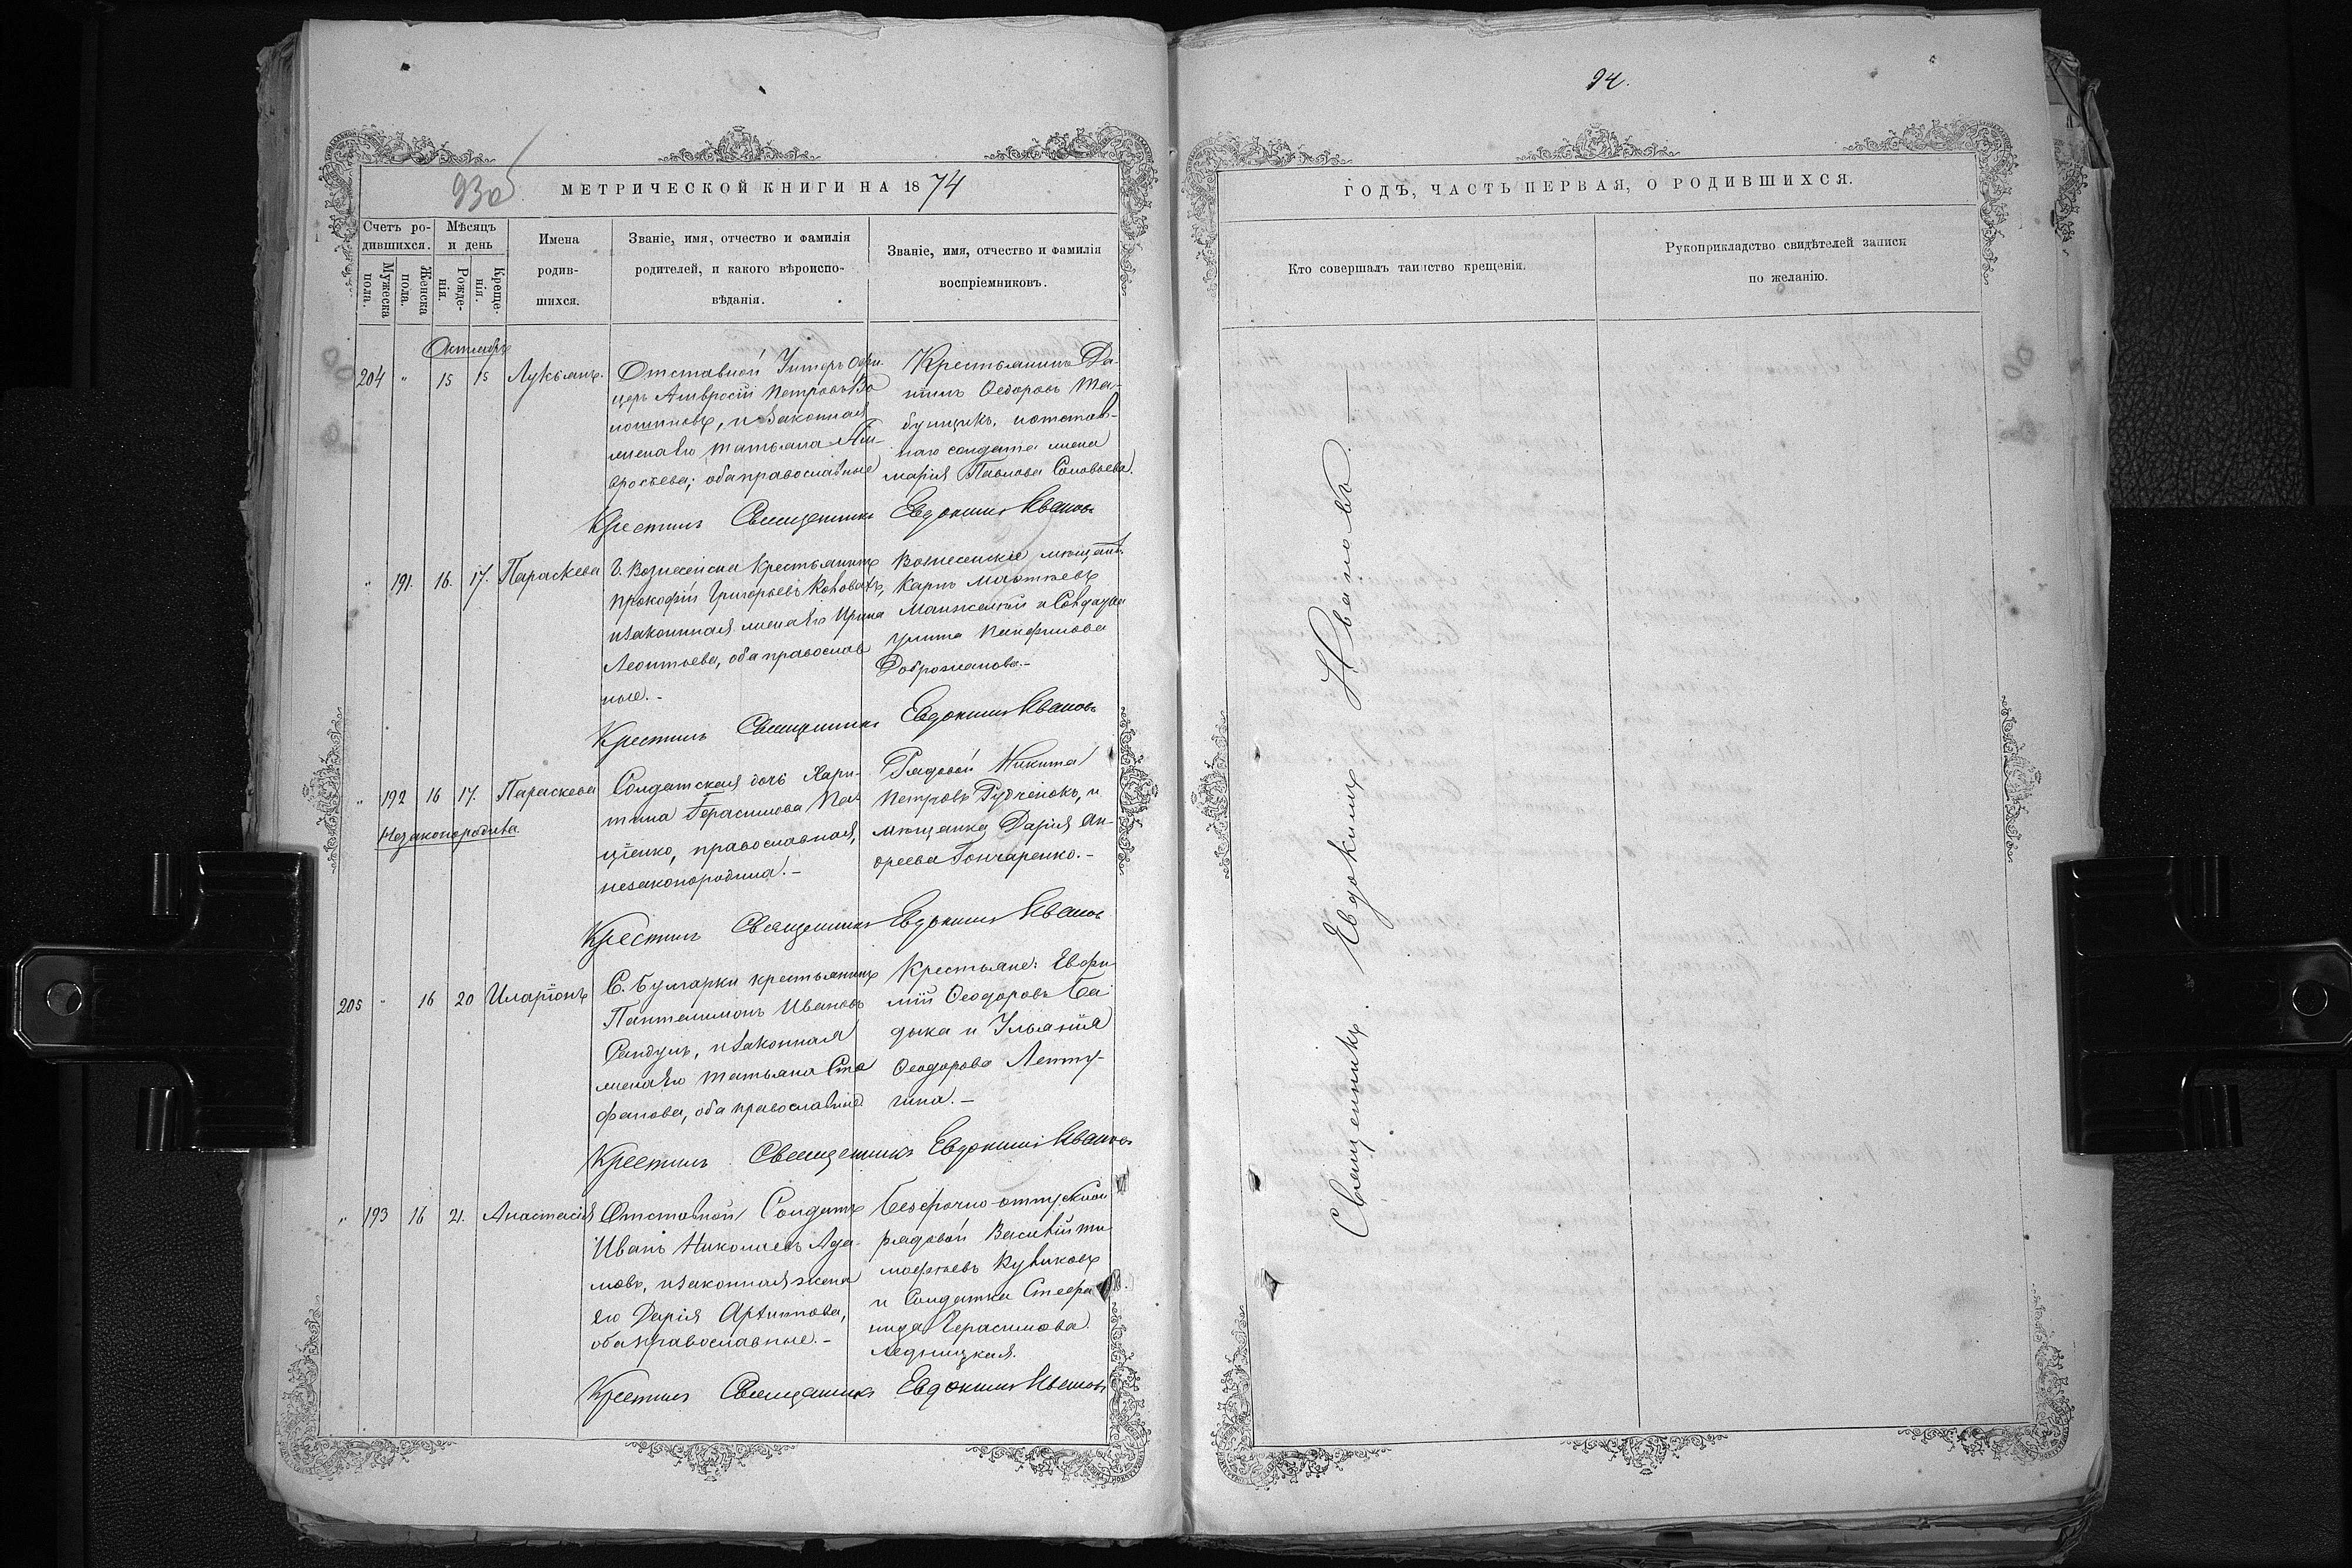 93об
МЕТРИЧЕСКОЙ КНИГИ НА 1874
Счетъ ро-
дившихся.
Мужеска
пола.
Женска
пола.
Мѣсяцъ
и день
Рожде-
нія.
Креще-
нія.
Имена
родив-
шихся.
Званіе, имя, отчество и фамилія
родителей, и какого вѣроиспо-
вѣданія.
Званіе, имя, отчество и фамилія
воспріемниковъ.
Октябрь
204 " 15 15 Лукьянъ.
Отставной Унтеръ Офи-
церъ Амвросій Петровъ Во
лошиновъ, и законная
жена его Татьяна Ам-
вросьева; оба православные
Крестьянинъ Да-
ніилъ Ѳедоровъ Та-
бунщикъ, и отстав-
наго солдата жена
Марія Павлова Соловьева.
Крестилъ Священникъ Евдокимъ Ивановъ
" 191. 16. 17. Параскева
Г. Вознесенска Крестьянинъ
Прокофій Григорьевъ Коновалъ,
и законная жена его Ирина
Леонтьева, оба православ
ные.-
Вознесенскіе мѣщане
Карпъ Матѳѣевъ
и Солдатка
Улита Панфилова
Доброжанова.-
Крестилъ Священникъ Евдокимъ Ивановъ
" 192 16 17. Параскева
Незаконорожд
Солдатская дочь Хари-
тина Герасимова Пол
щенко, православная,
незаконородила.-
Рядовой Никита
Петровъ Гудченокъ, и
мѣщанка Дарія Ан-
дреева Гончаренко.-
Крестилъ Священникъ Евдокимъ Ивановъ
205 " 16 20 Иларіонъ
С. Булгарки крестьянинъ
Пантелимонъ Ивановъ
Сандулъ, и законная
жена его Татьяна Сте
фанова, оба православные
Крестьяне: Евфи
мій Ѳеодоровъ Ба
дыка и Ульянія
Ѳеодорова Лепту-
гина.-
Крестилъ Священникъ Евдокимъ Ивановъ
" 193 16 21. Анастасія
Отставной Солдатъ
Иванъ Николаевъ Ада-
мовъ, и законная жена
его Дарія Архипова,
оба православные.-
Безсрочно-отпускной
рядовой Василій Ти
мофѣевъ Куликовъ
и Солдатка Стефа
нида Герасимова
Ледницкая.
Крестилъ Священникъ Евдокимъ Ивановъ
94.
ГОДЪ, ЧАСТЬ ПЕРВАЯ, О РОДИВШИХСЯ.
Кто совершалъ таинство крещенія.
Рукоприкладство свидѣтелей записи
по желанію.
Священникъ Евдокимъ Ивановъ.